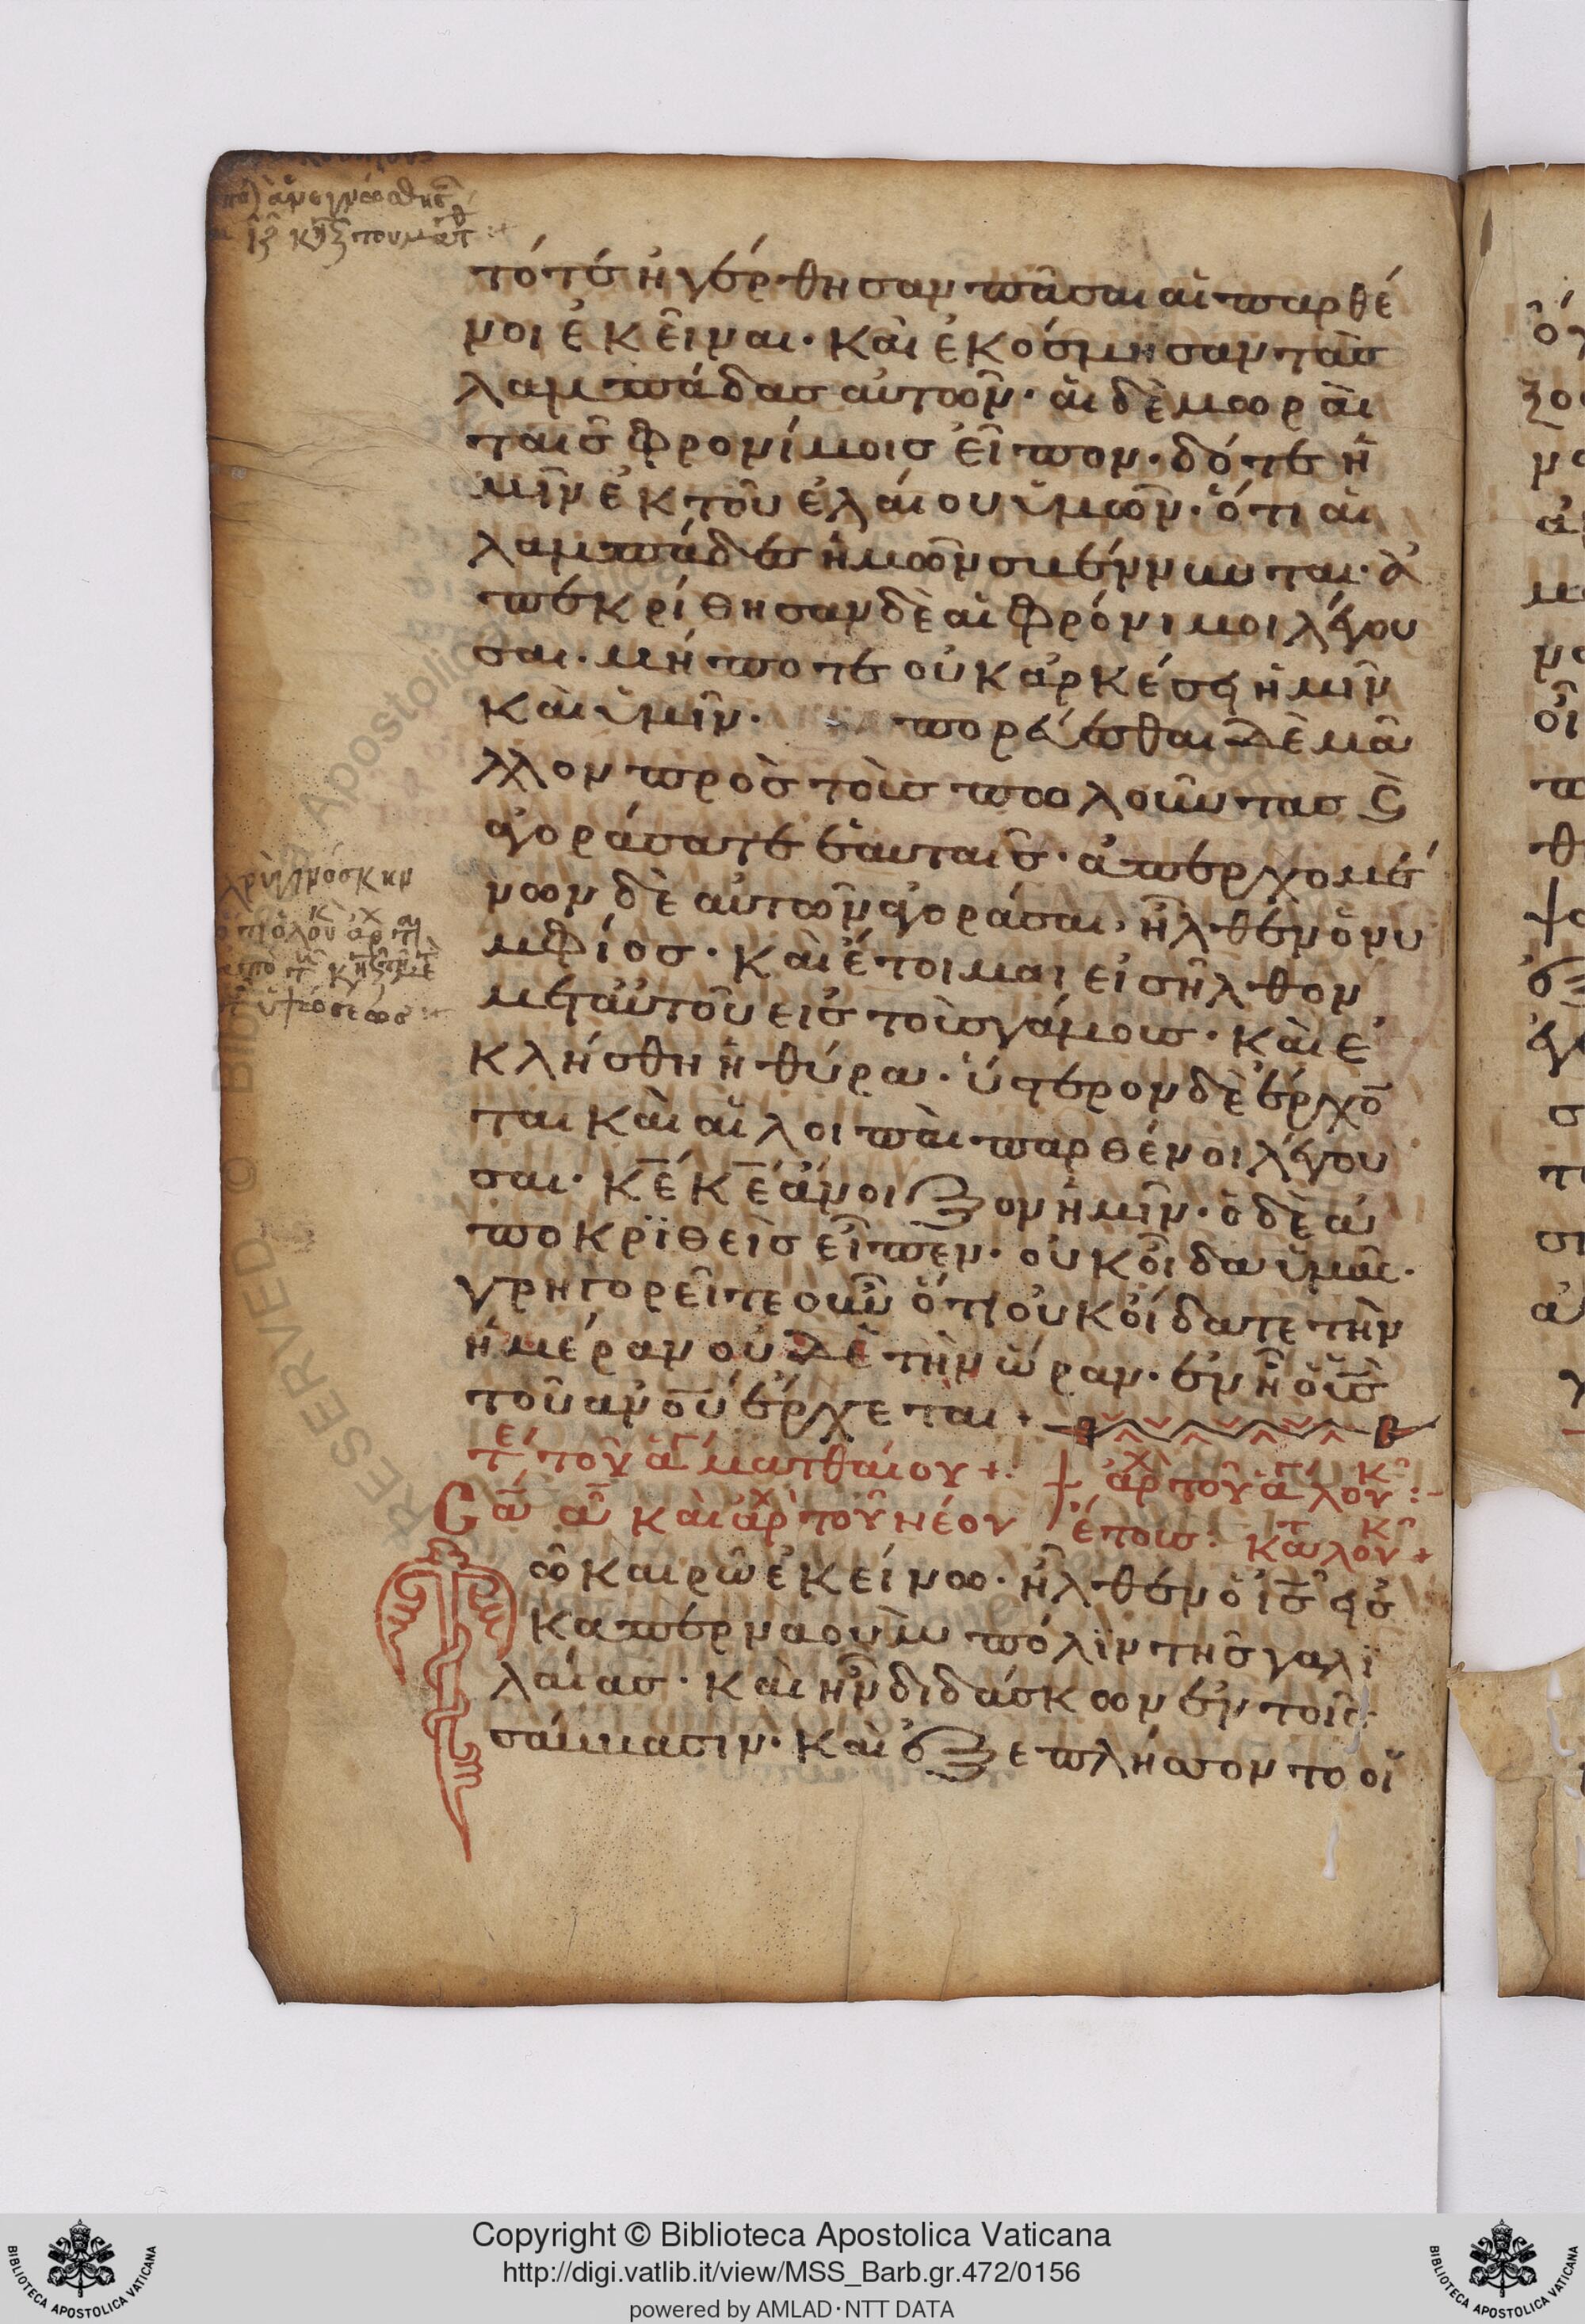 τότε ἠγέρθησαν πᾶσαι αἱ παρθέ
νοι ἐκεῖναι· καὶ ἐκόσμησαν τὰς
λαμπάδας αὐτῶν· αἱ δὲ μωραὶ
ταῖς φρονίμοις εἶπον· δότε ἡ
μῖν ἐκ τοῦ ἐλαίου ὑμῶν· ὅτι αἱ
λαμπάδες ἡμῶν σβέννυνται· ἀ
πεκρίθησαν δὲ αἱ φρόνιμοι λέγου
σαι· μήποτε οὐκ ἀρκέσῃ ἡμῖν
καὶ ὑμῖν· πορεύεσθαι δὲ μᾶ
λλον πρὸς τοὺς πωλοῦντας ϗ
ἀγοράσατε ἑαυταῖς· ἀπερχομέ
νων δὲ αὐτῶν ἀγοράσαι, ἦλθεν ὁ νυ
μφίος· καὶ ἕτοιμαι εἰσῆλθον
μετ' αὐτοῦ εἰς τοὺς γάμους· καὶ ἐ
κλήσθη ἡ θύρα· ὕστερον δὲ ἔρχο̅
ται καὶ αἱ λοιπαὶ παρθένοι λέγου
σαι· κ̅ε̅ κ̅ε̅ ἄνοιξον ἡμῖν· ὁ δὲ ἀ
ποκριθεὶς εἶπεν· οὐκ οἶδα ὑμᾶς·
γρηγορεῖτε οὖν ὅτι οὐκ οἴδατε τὴν
ἡμέραν οὐδὲ τὴν ὥραν· ἐν ᾗ ὁ υ̅ς̅
τοῦ ἀν̅ο̅υ̅ ἔρχεται +
τε τοῦ ἁγ ματθαίου + + ἀρχ τοῦ ἁγ λουκ :-
Σα α καὶ ἀρχ τοῦ νέου ἔτους: κατ λουκ +
ῶ καιρῶ ἐκείνω· ἦλθεν ὁ ι̅ς̅ εἰς
καπερναοὺμ πόλιν τῆς γαλι
λαίας· καὶ ἦν διδάσκων ἐν τοῖς
σάββασιν· καὶ ἐξεπλήσσοντο οἱ
Copyright © Biblioteca Apostolica Vaticana
http://digi.vatlib.it/view/MSS_Barb.gr.472/0156
powered by AMLAD·NTT DATA
BIBLIOTECA APOSTOLICA VATICANA
BIBLIOTECA APOSTOLICA VATICANA